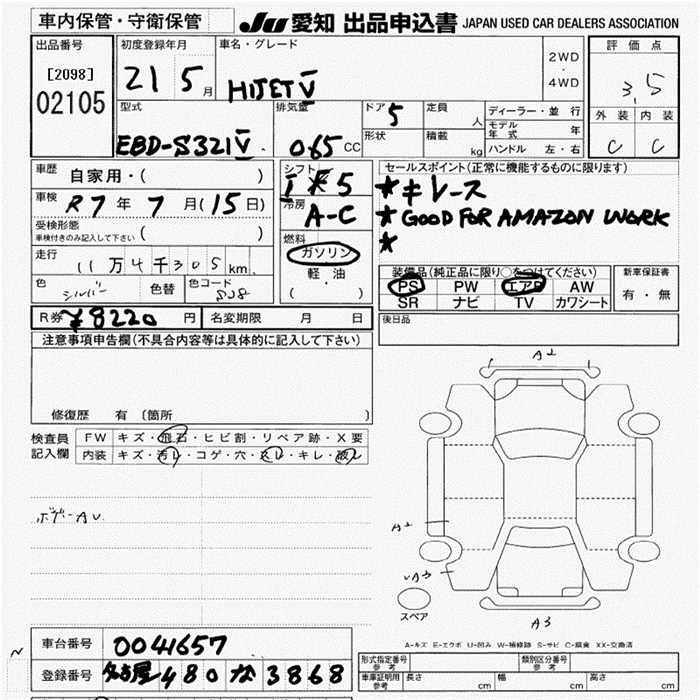 車内保管・守衛保管
JU 愛知 出品申込書 JAPAN USED CAR DEALERS ASSOCIATION
出品番号
[2098]
02105
初度登録年月
21 5 月
車名・グレード
HIJET V
2WD
・
4WD
評価点
3.5
外装 内装
C C
型式
EBD-S321V
排気量
065 CC
ドア 5
形状
定員 人
積載 kg
ディーラー・並行
モデル年式 年
ハンドル 左・右
車歴
自家用・( )
車検
R7年 7月(15日)
受検形態
車検付きのみ記入して下さい ( )
走行
11万4千305km
色
シルバー
色替
色コード
S28
シフト
I F 5
冷房
A-C
燃料
ガソリン
軽・油
( )
セールスポイント(正常に機能するものに限ります)
★キレース
★GOOD FOR AMAZON WORK
★
装備品(純正品に限り○をつけてください)
PS PW エアB AW
SR ナビ TV カワシート
新車保証書
有・無
後日品
R券 ¥8220 円
名変期限 月 日
注意事項申告欄(不具合内容等は具体的に記入して下さい)
修復歴 有 〔箇所
検査員
記入欄
FW キズ・飛石・ヒビ割・リペア跡・X要
内装 キズ・汚レ・コゲ・穴・スレ・キレ・破レ
ボデーAU
A2
A2
A3
A3
スペア
A-キズ E-エクボ U-凹み W-補修跡 S-サビ C-腐食 XX-交換済
車台番号
0041657
登録番号
名古屋 480 な 3868
形式指定番号
参考
類別区分番号
参考
車庫証明用
参考
長さ cm 幅 cm 高さ cm